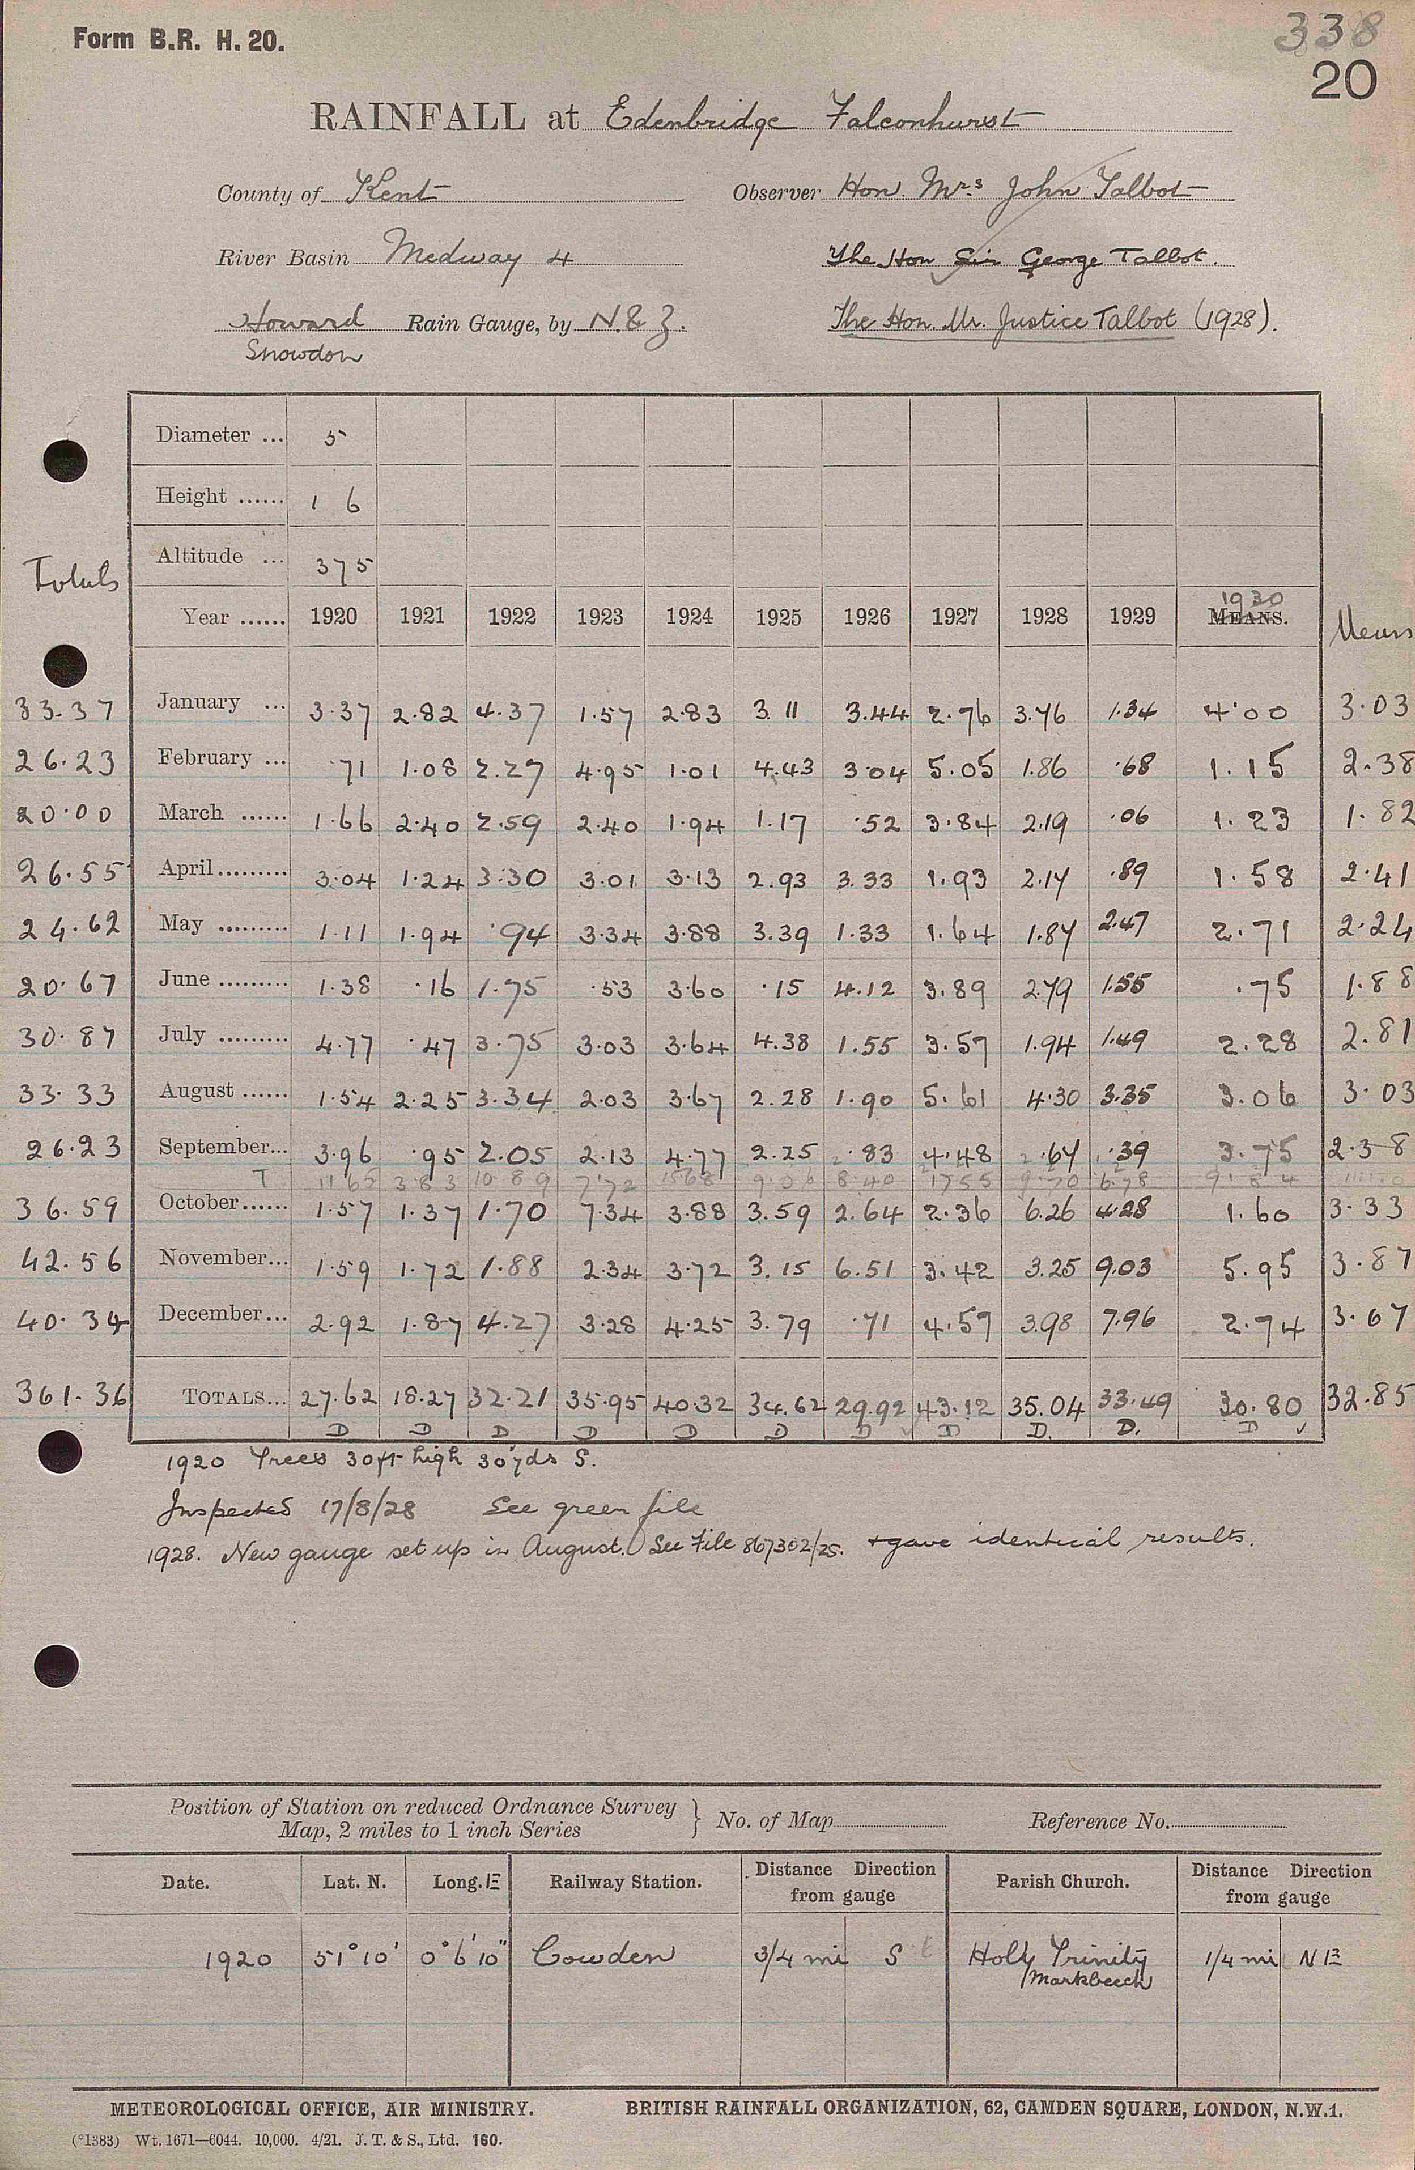 Form B.R. H. 20.
338
20
RAINFALL at Edenbridge Falconhurst
County of Kent Observer Hon Mrs John Talbot
River Basin Medway 4 The Hon Sir George Talbot.
Howard Rain Gauge, by N. & Z. The Hon. Mr. Justice Talbot (1928).
Snowdon
Diameter ... 5
Height ...... 1 6
Altitude ... 375
Totals
Year ...... 1920 1921 1922 1923 1924 1925 1926 1927 1928 1929 1930 MEANS. Means
33.37 January ... 3.37 2.82 4.37 1.57 2.83 3.11 3.44 2.76 3.76 1.34 4.00 3.03
26.23 February ... .71 1.08 2.27 4.95 1.01 4.43 3.04 5.05 1.86 .68 1.15 2.38
20.00 March ...... 1.66 2.40 2.59 2.40 1.94 1.17 .52 3.84 2.19 .06 1.23 1.82
26.55 April......... 3.04 1.24 3.30 3.01 3.13 2.93 3.33 1.93 2.17 .89 1.58 2.41
24.62 May ......... 1.11 1.94 .94 3.34 3.88 3.39 1.33 1.64 1.87 2.47 2.71 2.24
20.67 June ......... 1.38 .16 1.75 .53 3.60 .15 4.12 3.89 2.79 1.55 .75 1.88
30.87 July ......... 4.77 .47 3.75 3.03 3.64 4.38 1.55 3.57 1.94 1.49 2.28 2.81
33.33 August ...... 1.54 2.25 3.34 2.03 3.67 2.28 1.90 5.61 4.30 3.35 3.06 3.03
26.23 September... 3.96 .95 2.05 2.13 4.77 2.25 .83 4.48 .67 .39 3.75 2.38
T 11 65 3 83 10 89 7 72 1568 8 40 1755 9 70 6 78 9 8 4
36.59 October...... 1.57 1.37 1.70 7.34 3.88 3.59 2.64 2.36 6.26 4.28 1.60 3.33
42.56 November... 1.59 1.72 1.88 2.34 3.72 3.15 6.51 3.42 3.25 9.03 5.95 3.87
40.34 December... 2.92 1.87 4.27 3.28 4.25 3.79 .71 4.57 3.98 7.96 2.74 3.67
361.36 TOTALS... 27.62 18.27 32.21 35.95 40.32 34.62 29.92 43.12 35.04 33.49 30.80 32.85
D D D D D D D D D. D. D
1920 Trees 30ft high 30 yds S.
Inspected 17/8/28 See green file
1928. New gauge set up in August. See File 867302/28. + gave identical results.
Position of Station on reduced Ordnance Survey Map, 2 miles to 1 inch Series } No. of Map Reference No.
Date. Lat. N. Long. E Railway Station. Distance Direction from gauge Parish Church. Distance Direction from gauge
1920 51° 10' 0° 6' 10" Cowden 3/4 mi S E Holy Trinity Markbeech 1/4 mi NE
METEOROLOGICAL OFFICE, AIR MINISTRY. BRITISH RAINFALL ORGANIZATION, 62, CAMDEN SQUARE, LONDON, N.W.1.
(*1383) Wt. 1671—6044. 10,000. 4/21. J. T. & S., Ltd. 160.